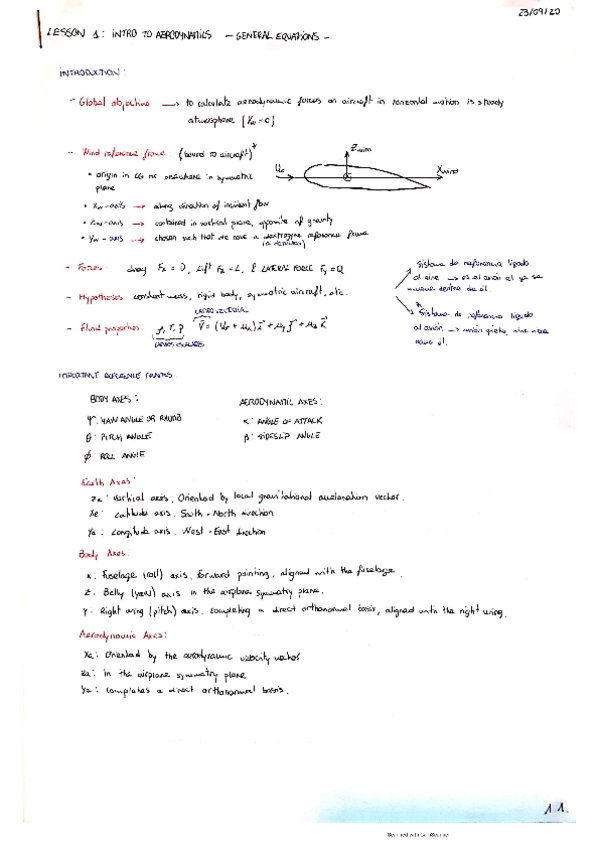 23/09/20
LESSON 1: INTRO TO AERODYNAMICS - GENERAL EQUATIONS -
INTRODUCTION:
- Global objective → to calculate aerodynamic forces on aircraft in horizontal motion in steady
atmosphere (Vw = 0)
- Wind reference frame (bound to aircraft)*
• origin in CG or elsewhere in symmetric
plane
Zwind
Xwind
• Xw-axis → along direction of incident flow
• Zw-axis → contained in vertical plane, opposite of gravity
• Yw-axis → chosen such that we have a reference frame
- Forces drag Fx = D, Lift Fz = L, & LATERAL FORCE Fy = Q
- Hypotheses constant mass, rigid body, symmetric aircraft, etc.
CAMPO VECTORIAL
- Fluid properties: ρ, T, p
CAMPOS ESCALARES
Sistema de referencia ligado
al aire → es el avión el que se
mueve dentro de él.
*
Sistema de referencia ligado
al avión → avión quieto, aire
IMPORTANT REFERENCE FRAMES
BODY AXES:
ψ: YAW ANGLE OR
θ: PITCH ANGLE
ϕ ROLL ANGLE
AERODYNAMIC AXES:
α: ANGLE OF ATTACK
β: SIDESLIP ANGLE
Earth Axes:
ze: Vertical axis, Oriented by local gravitational acceleration vector.
xe: Latitude axis. South-North direction
ye: Longitude axis. West-East direction
Body Axes:
x: Fuselage (roll) axis, forward pointing, aligned with the fuselage.
z: Belly (yaw) axis in the airplane symmetry plane.
y: Right wing (pitch) axis, completing a direct orthonormal basis, aligned with the right wing.
Aerodynamic Axes:
xa: Oriented by the aerodynamic velocity vector
za: In the airplane symmetry plane
ya: completes a direct orthonormal basis.
1.1.
Scanned with CamScanner